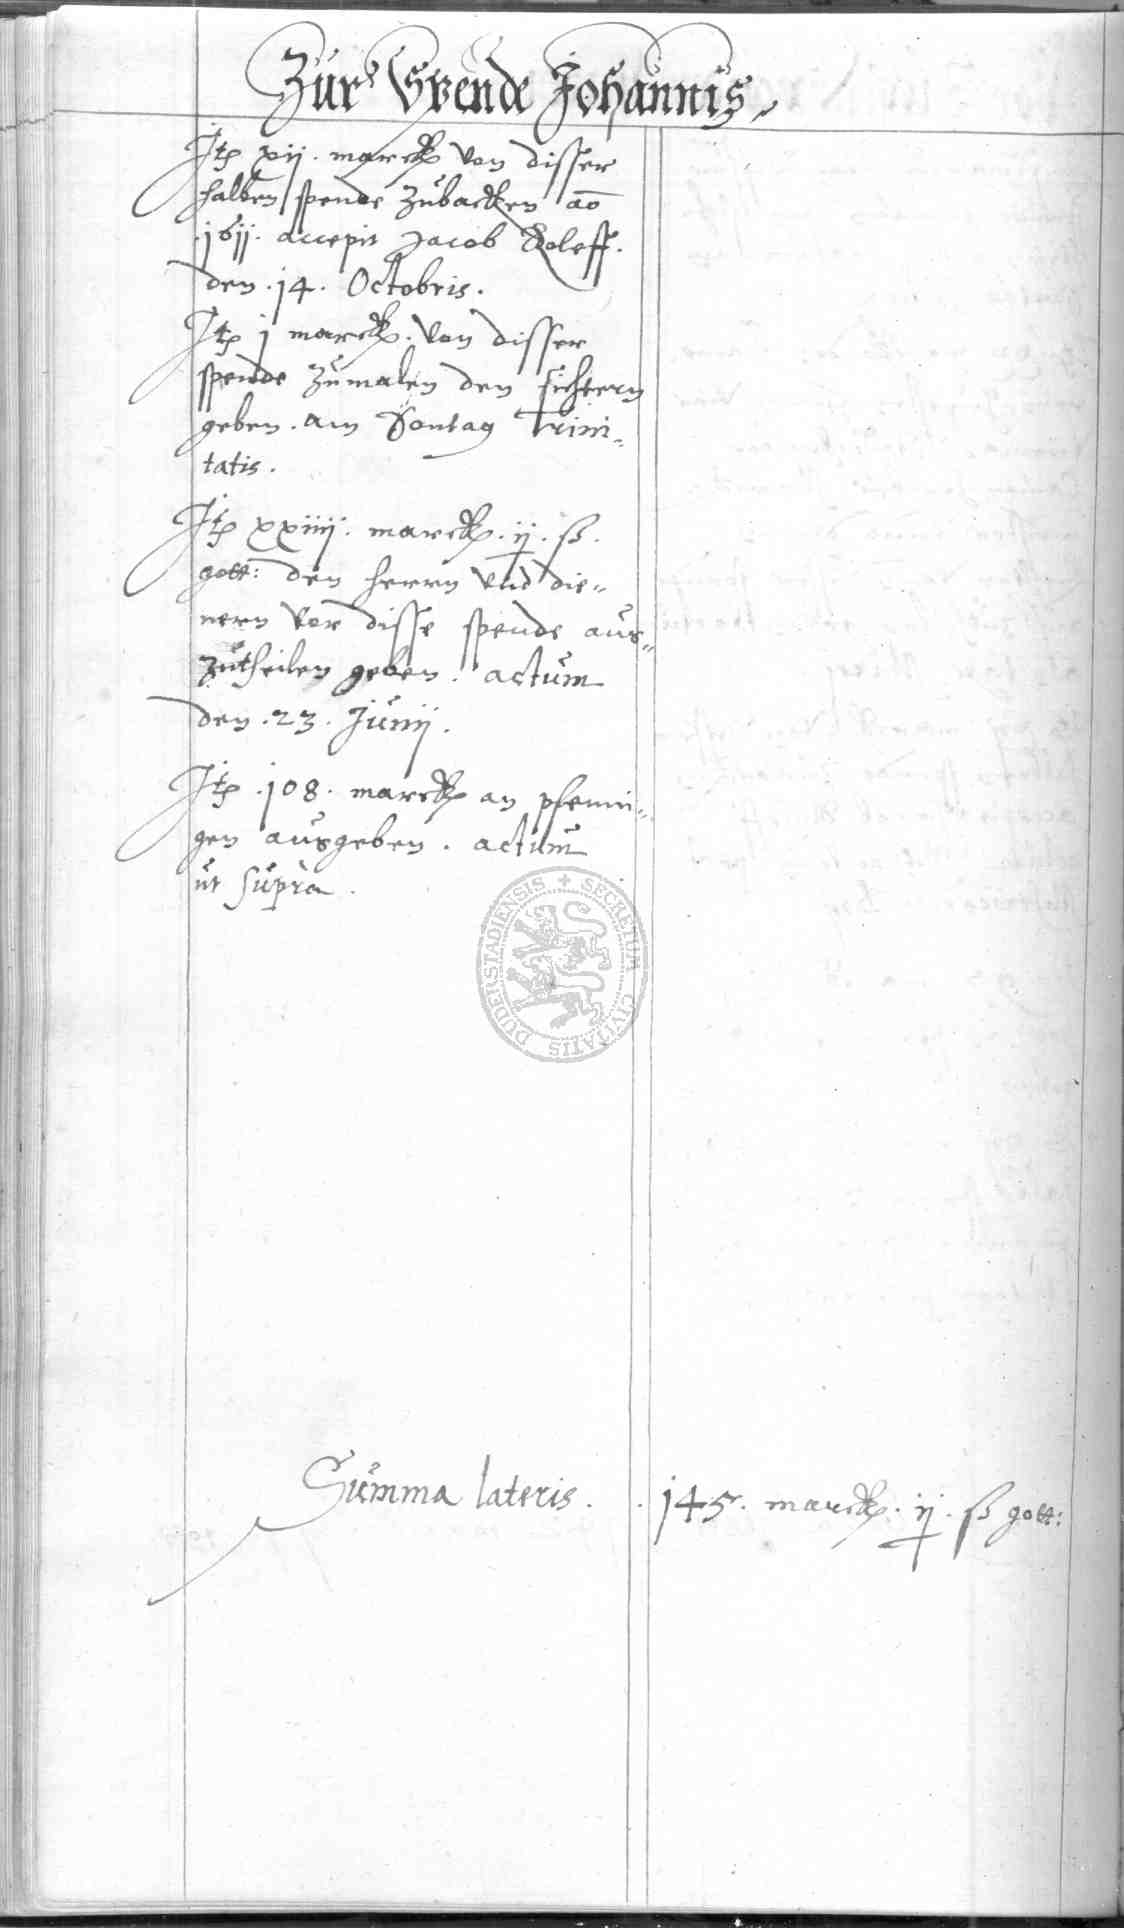 Zur Spende Johannis
Itz xij. marck von disser
halben spende zubacken ao
.1611. accepit Jacob Roleff.
den .14. Octobris.
Itz j marck. von disser
spende zumalen den sichtern
geben. am Sontag Trini-
tatis.
Itz xxiiij. marck. ij. ß.
gott: den herrn und die-
nern vor disse spende aus-
zutheilen geben. actum
den .23. Junij.
Itz .108. marck an pfenni-
gen ausgeben. actum
ut supra.
DUDERSTADIENSIS + SECRETUM CIVITATIS
Summa lateris. .145. marck. ij. ß gott: